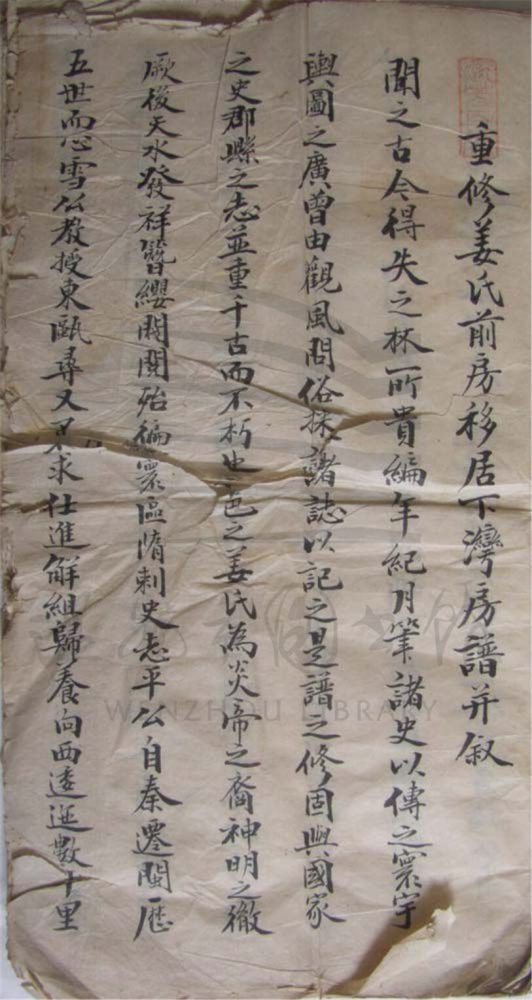 重修姜氏前房移居下灣房譜并叙
聞之古今得失之林所貴編年紀月筆諸史以傳之寰宇
輿圖之廣曾由觀風問俗採諸誌以記之是譜之修固與國家
之史郡縣之志並重千古而不朽也邑之姜氏為炎帝之裔神明之徹
厥後天水發祥簪纓閥閱殆徧寰區惰刺史志平公自秦遷閩歷
五世而心雪公教授東甌尋又不求仕進解組歸養向西逶迤數十里
WENZHOU LIBRARY